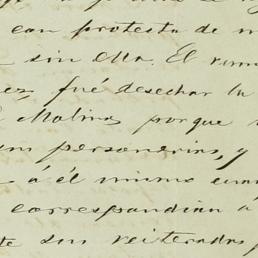 con protesta de
sin ella. El
fué desechar la
Molina, porque
personerias, y
á él mismo
correspondian á
te sus reiteradas